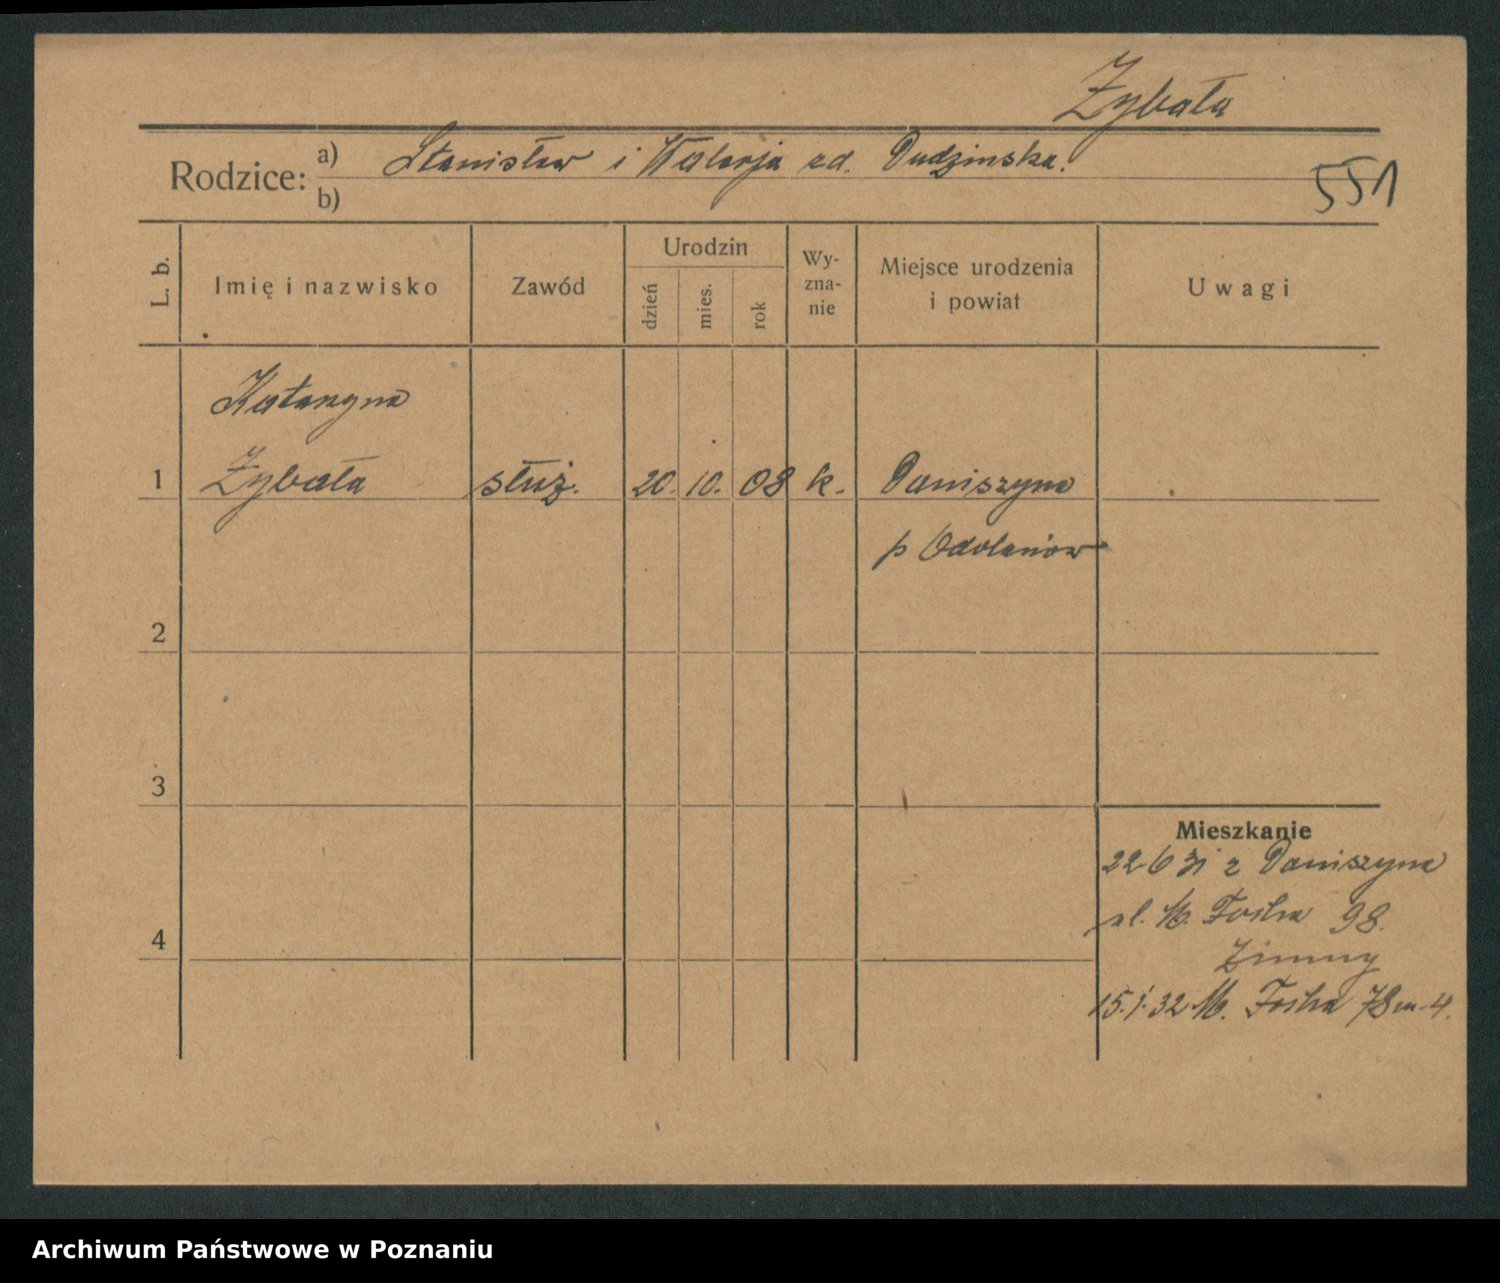 Zybała
Rodzice: a) Stanisław i Walerja zd. Dudzinska.
b)
551
L. b.
Imię i nazwisko
Zawód
Urodzin
dzień
mies.
rok
Wy-
zna-
nie
Miejsce urodzenia
i powiat
Uwagi
Katarzyna
1 Zybała służ. 20. 10. 08 k. Daniszyna
p Odolanów
2
3
Mieszkanie
22.6 31 z Daniszyna
ul. M. Focha 98.
4
Zimny
15.1.32 M. Focha 78 m. 4.
Archiwum Państwowe w Poznaniu